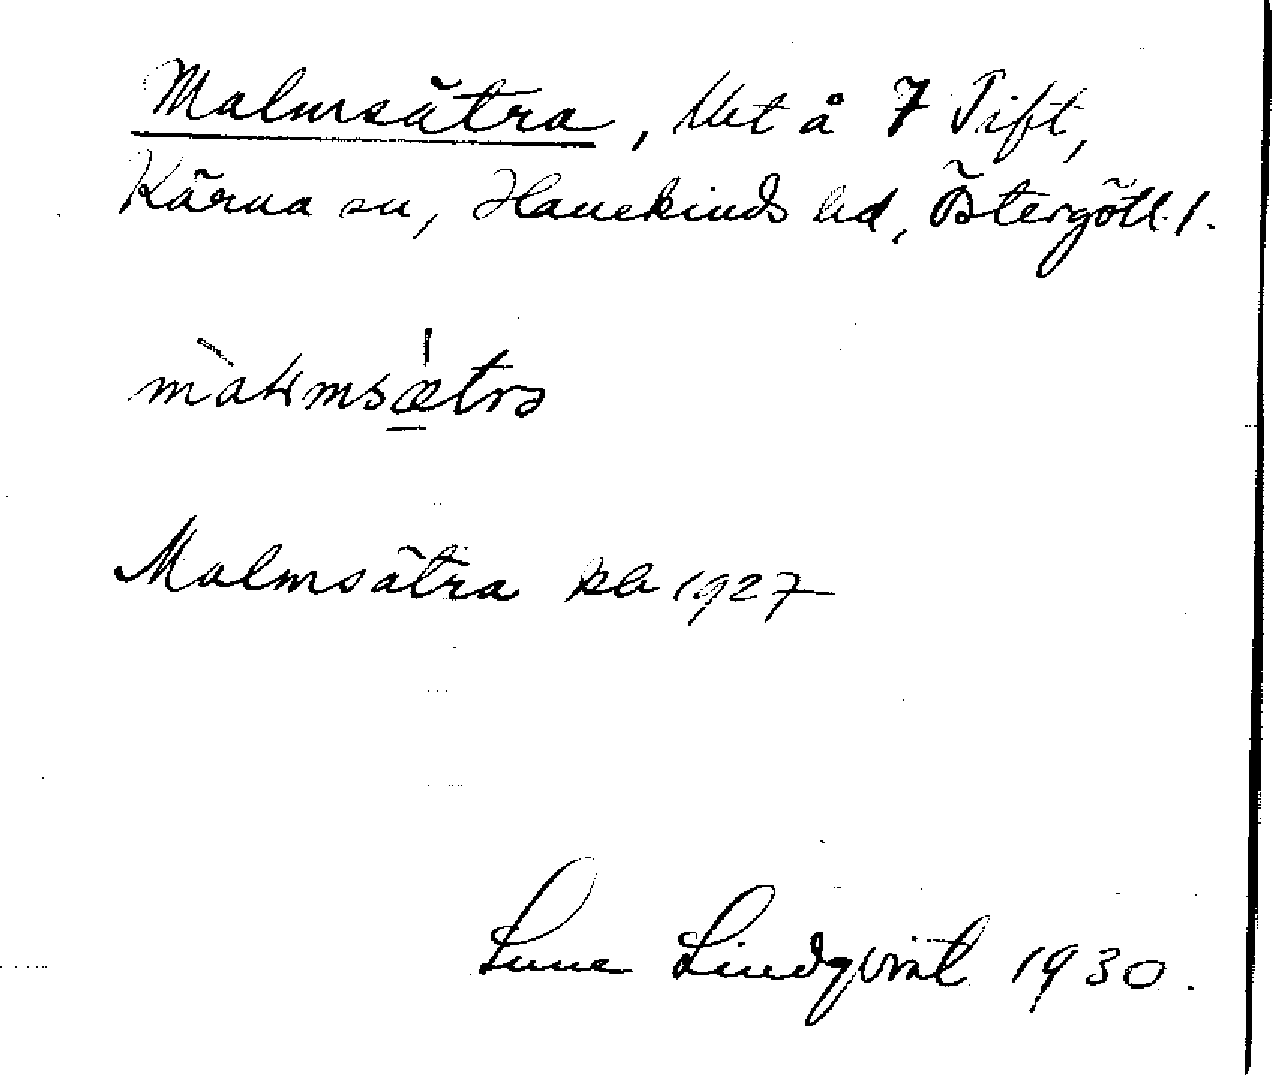 Malmsätra, lht å 7 Tift,
Kärna sn, Hanekinds hd, Östergötl. l.
màlmsæ̀tra
Malmsätra kb 1927
Sune Lindqvist 1930.